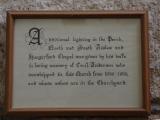 Additional lighting in the Porch,
North and South Aisles and
Hungerford Chapel was given by his wife
in loving memory of Cecil Anderson who
worshipped in this Church from 1950-1959,
and whose ashes are in the Churchyard.